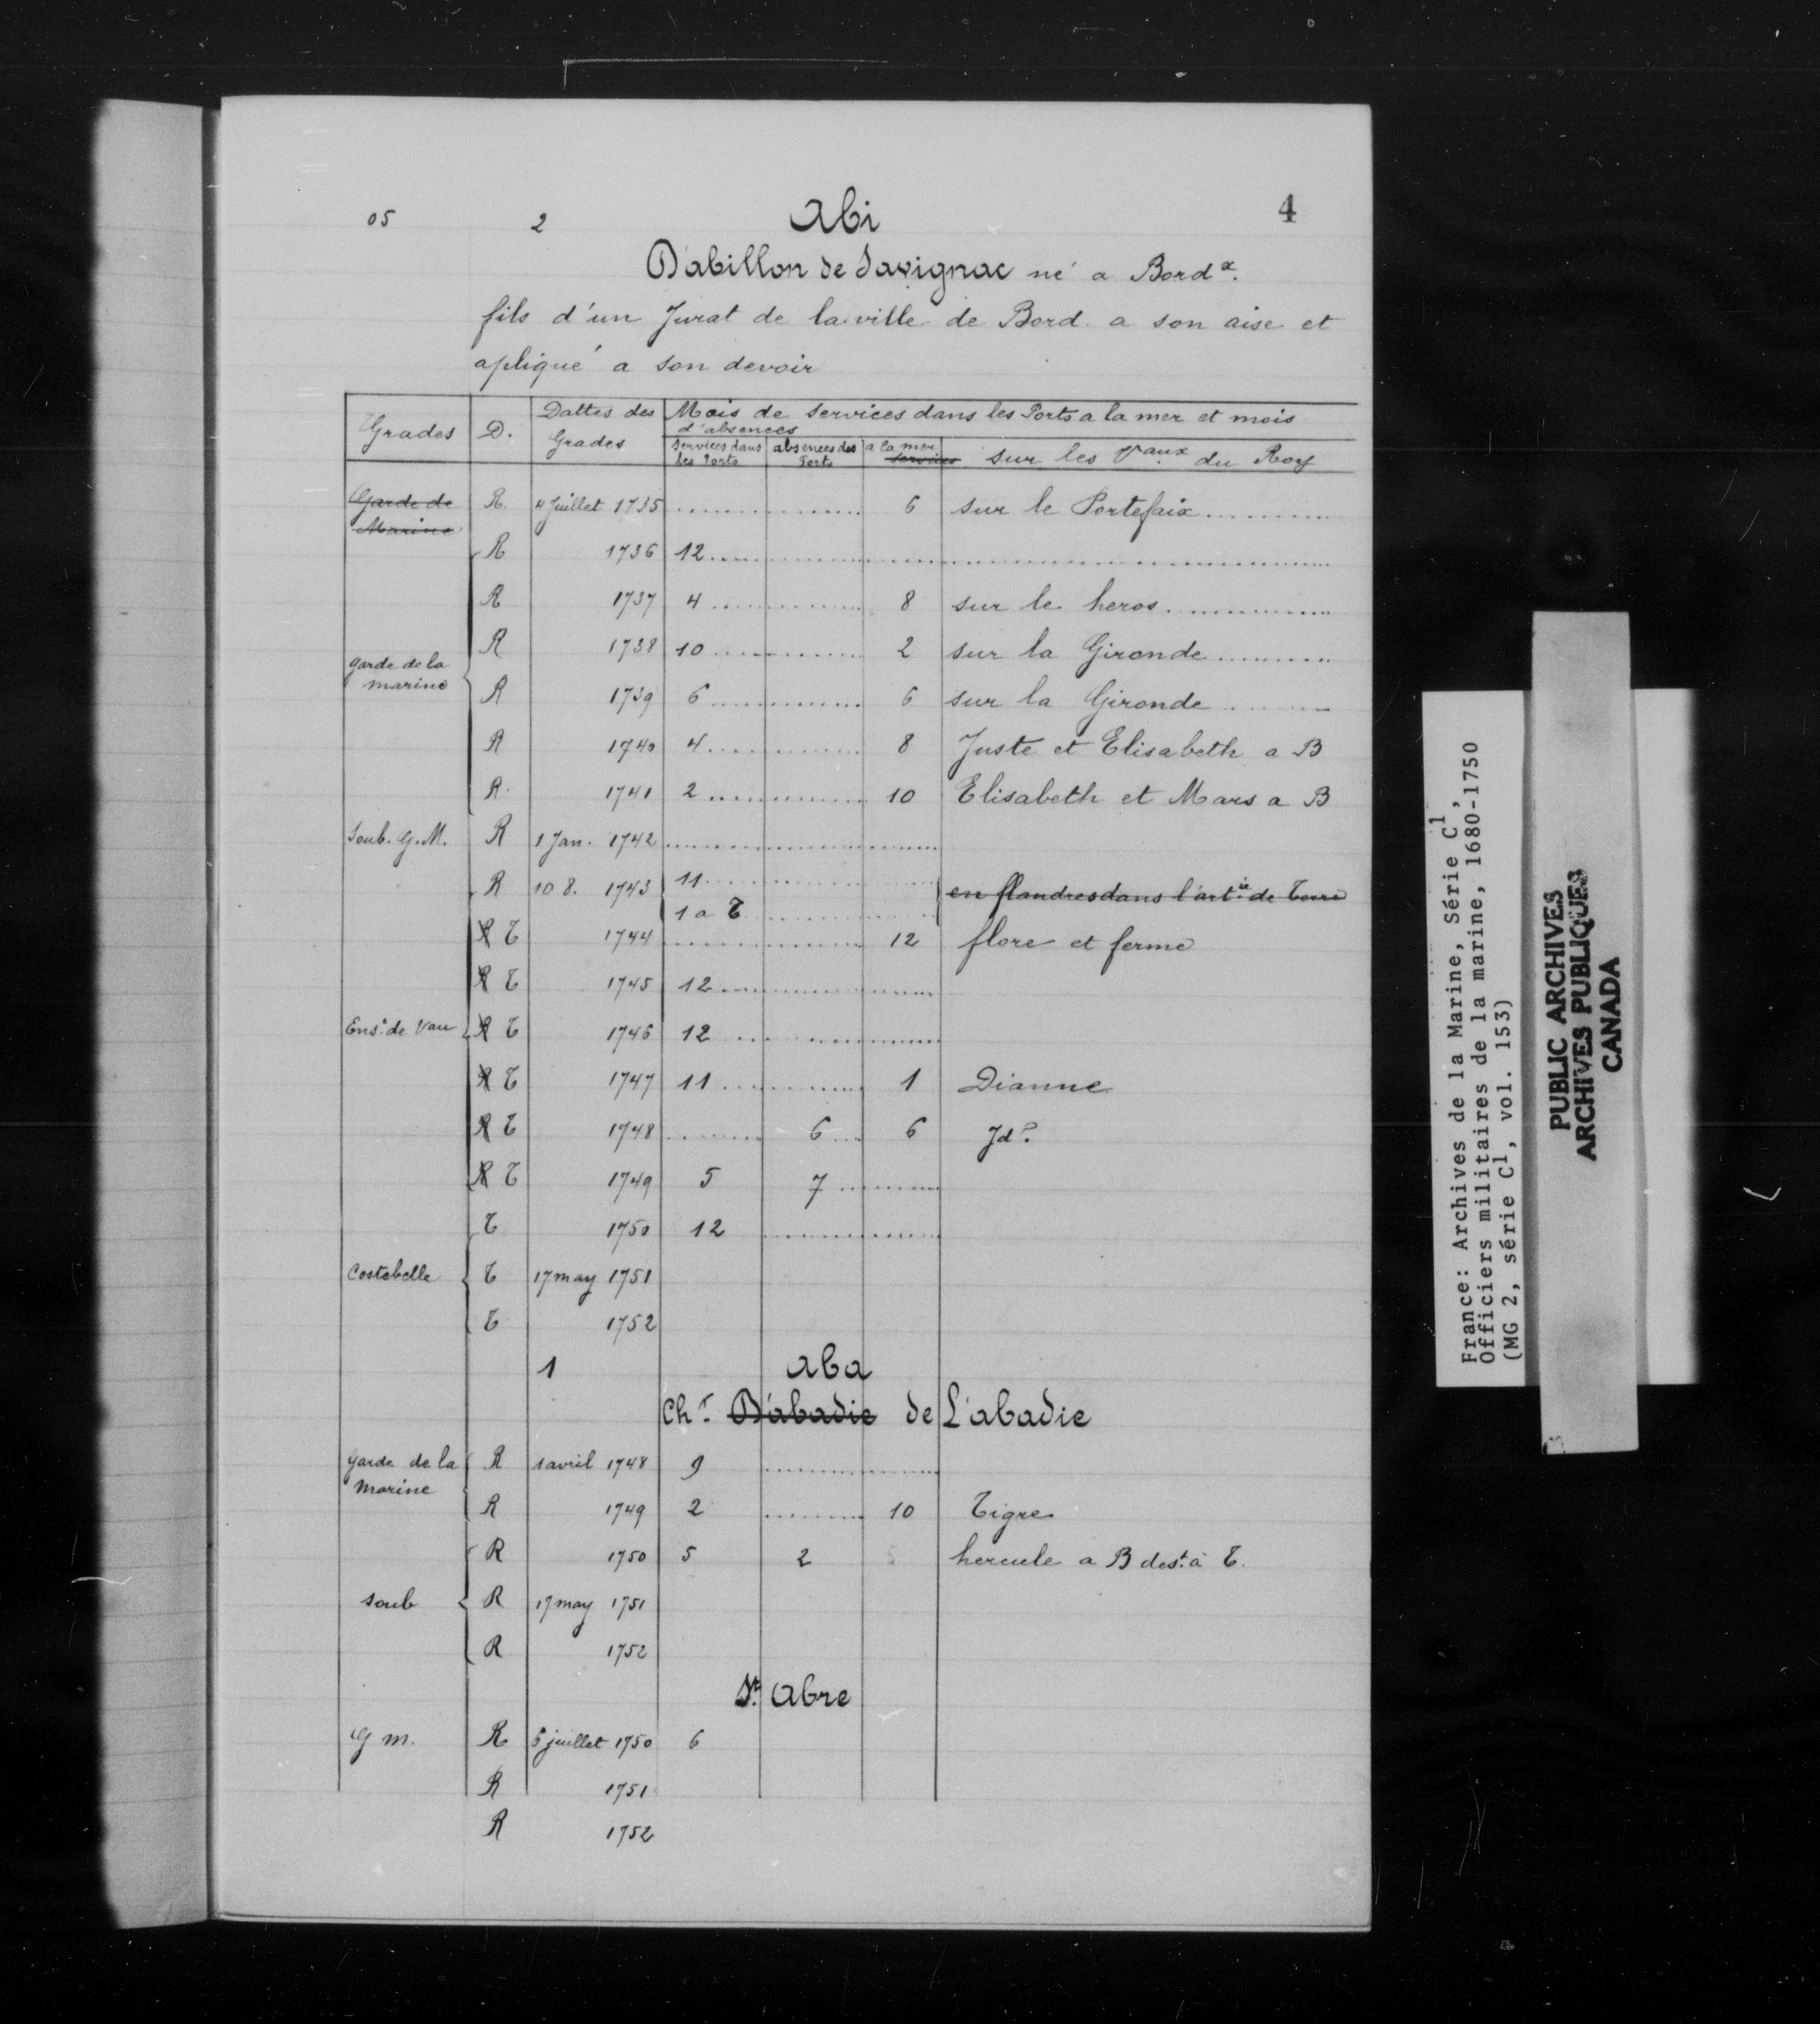 05 2 Abi 4
Dabillon de Savignac né a Bordx.
fils d'un Jurat de la ville de Bord. a son aise et
apliqué a son devoir
Grades D. Dattes des Grades Mois de services dans les Ports a la mer et mois d'absences
services dans les Ports absences des Ports a la mer services sur les Vaux du Roy
Garde de Marine R. 4 Juillet 1735 6 sur le Portefaix
R 1736 12
R 1737 4 8 sur le heros
R 1738 10 2 sur la Gironde
garde de la marine R 1739 6 6 sur la Gironde
R 1740 4 8 Juste et Elisabeth a B
R. 1741 2 10 Elisabeth et Mars a B
Soub. G.M. R 1 Jan. 1742
R 10 8. 1743 11 en flandres dans l'artie de terre
1 a T
R T 1744 12 flore et ferme
R T 1745 12
Ens. de Vau R T 1746 12
R T 1747 11 1 Dianne
R T 1748 6 6 Jd?
R T 1749 5 7
T 1750 12
Costebelle T 17 may 1751
T 1752
1 aba
Chr D'abadie de L'abadie
garde de la marine R 1 avril 1748 9
R 1749 2 10 Tigre
R 1750 5 2 5 hercule a B dest. à T.
soub R 17 may 1751
R 1752
St. Abre
G m. R 5 juillet 1750 6
R 1751
R 1752
France: Archives de la Marine, Série C1,
Officiers militaires de la marine, 1680-1750
(MG 2, série C1, vol. 153)
PUBLIC ARCHIVES
ARCHIVES PUBLIQUES
CANADA